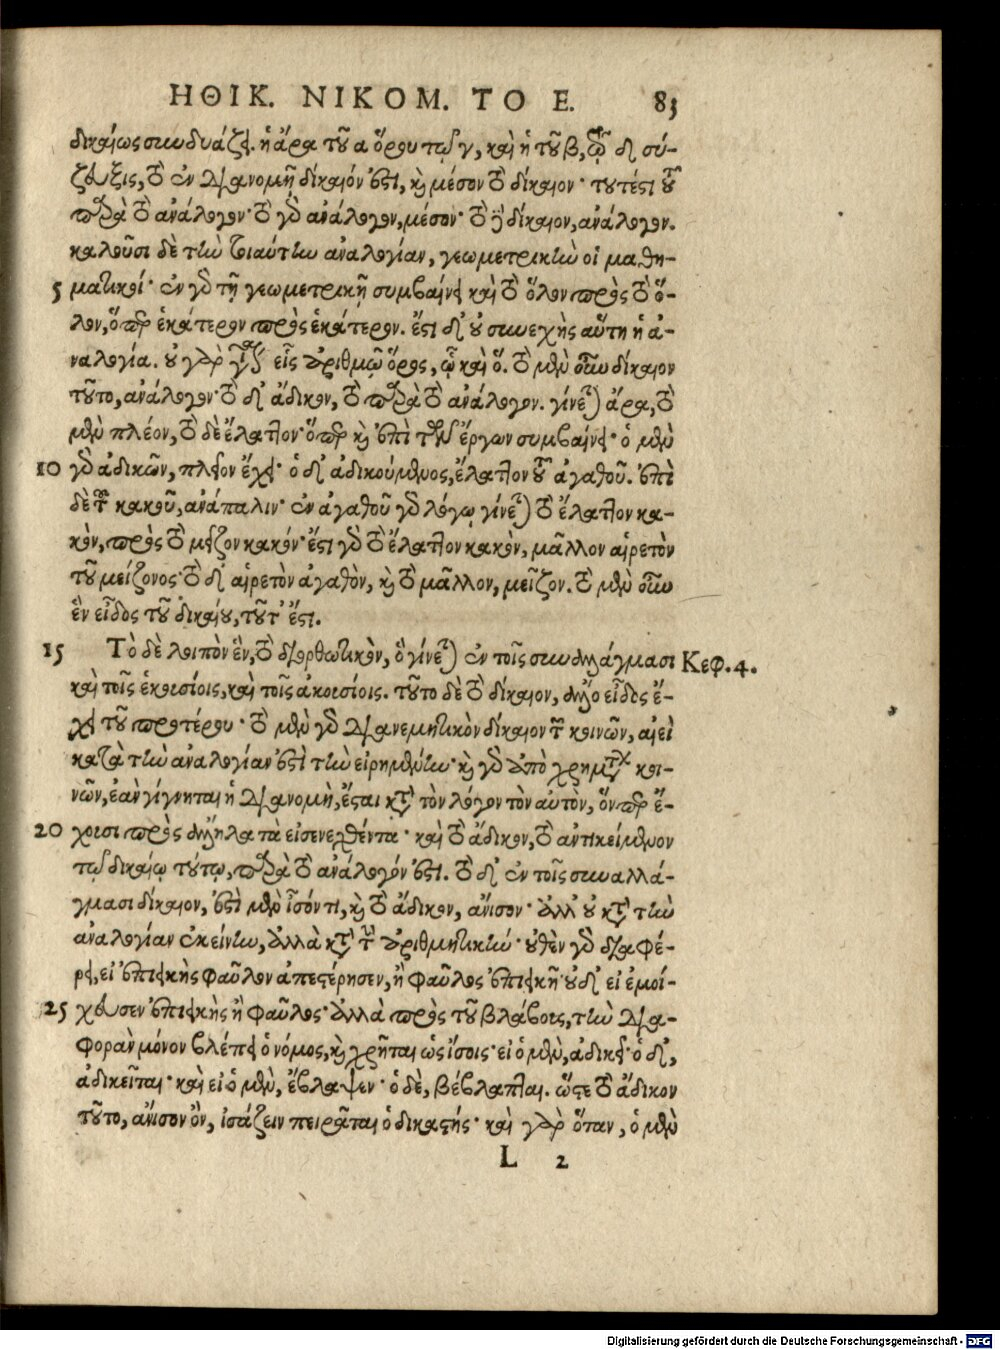 ΗΘΙΚ. ΝΙΚΟΜ. ΤΟ Ε. 83
δικαίως συνδυάζει. ἡ ἄρα τοῦ α ὅρου τῷ γ, καὶ ἡ τοῦ β, τῷ δ σύ-
ζευξις, τὸ ἐν διανομῇ δίκαιόν ἐστι, καὶ μέσον τὸ δίκαιον· τουτέστι τοῦ
παρὰ τὸ ἀνάλογον· τὸ γὰρ ἀνάλογον, μέσον· τὸ δὲ δίκαιον, ἀνάλογον.
καλοῦσι δὲ τὴν τοιαύτην ἀναλογίαν, γεωμετρικὴν οἱ μαθη-
5 ματικοί· ἐν γὰρ τῇ γεωμετρικῇ συμβαίνει καὶ τὸ ὅλον πρὸς τὸ ὅ-
λον, ὅπερ ἑκάτερον πρὸς ἑκάτερον. ἔστι δ' οὐ συνεχὴς αὕτη ἡ ἀ-
ναλογία. οὐ γὰρ γίνεται εἷς ἀριθμῷ ὅρος, ᾧ καὶ ὅ. τὸ μὲν οὖν δίκαιον
τοῦτο, ἀνάλογον· τὸ δ' ἄδικον, τὸ παρὰ τὸ ἀνάλογον. γίνεται ἄρα, τὸ
μὲν πλέον, τὸ δὲ ἔλαττον· ὅπερ καὶ ἐπὶ τῶν ἔργων συμβαίνει· ὁ μὲν
10 γὰρ ἀδικῶν, πλεῖον ἔχει· ὁ δ' ἀδικούμενος, ἔλαττον τοῦ ἀγαθοῦ. ἐπὶ
δὲ τοῦ κακοῦ, ἀνάπαλιν· ἐν ἀγαθοῦ γὰρ λόγῳ γίνεται τὸ ἔλαττον κα-
κὸν, πρὸς τὸ μεῖζον κακόν· ἔστι γὰρ τὸ ἔλαττον κακὸν, μᾶλλον αἱρετὸν
τοῦ μείζονος· τὸ δ' αἱρετὸν ἀγαθὸν, καὶ τὸ μᾶλλον, μεῖζον. τὸ μὲν οὖν
ἓν εἶδος τοῦ δικαίου, τοῦτ' ἔστι.
15 Τὸ δὲ λοιπὸν ἓν, τὸ διορθωτικὸν, ὃ γίνεται ἐν τοῖς συναλλάγμασι Κεφ. 4.
καὶ τοῖς ἑκουσίοις, καὶ τοῖς ἀκουσίοις. τοῦτο δὲ τὸ δίκαιον, ἄλλο εἶδος ἔ-
χει τοῦ προτέρου· τὸ μὲν γὰρ διανεμητικὸν δίκαιον τῶν κοινῶν, αἰεὶ
κατὰ τὴν ἀναλογίαν ἐστὶ τὴν εἰρημένην· καὶ γὰρ ἀπὸ χρημάτων κοι-
νῶν, ἐὰν γίγνηται ἡ διανομὴ, ἔσται κατὰ τὸν λόγον τὸν αὐτὸν, ὅνπερ ἔ-
20 χουσι πρὸς ἄλληλα τὰ εἰσενεχθέντα· καὶ τὸ ἄδικον, τὸ ἀντικείμενον
τῷ δικαίῳ τούτῳ, παρὰ τὸ ἀνάλογόν ἐστι. τὸ δ' ἐν τοῖς συναλλά-
γμασι δίκαιον, ἐστὶ μὲν ἶσόν τι, καὶ τὸ ἄδικον, ἄνισον· ἀλλ' οὐ κατὰ τὴν
ἀναλογίαν ἐκείνην, ἀλλὰ κατὰ τὴν ἀριθμητικήν· οὐθὲν γὰρ διαφέ-
ρει, εἰ ἐπιεικὴς φαῦλον ἀπεστέρησεν, ἢ φαῦλος ἐπιεικῆ· οὐδ' εἰ ἐμοί-
25 χευσεν ἐπιεικὴς ἢ φαῦλος· ἀλλὰ πρὸς τοῦ βλάβους, τὴν δια-
φορὰν μόνον βλέπει ὁ νόμος, καὶ χρῆται ὡς ἴσοις· εἰ ὁ μὲν, ἀδικεῖ· ὁ δ',
ἀδικεῖται· καὶ εἰ ὁ μὲν, ἔβλαψεν· ὁ δὲ, βέβλαπται. ὥστε τὸ ἄδικον
τοῦτο, ἄνισον ὂν, ἰσάζειν πειρᾶται ὁ δικαστής· καὶ γὰρ ὅταν, ὁ μὲν
L 2
Digitalisierung gefördert durch die Deutsche Forschungsgemeinschaft - DFG